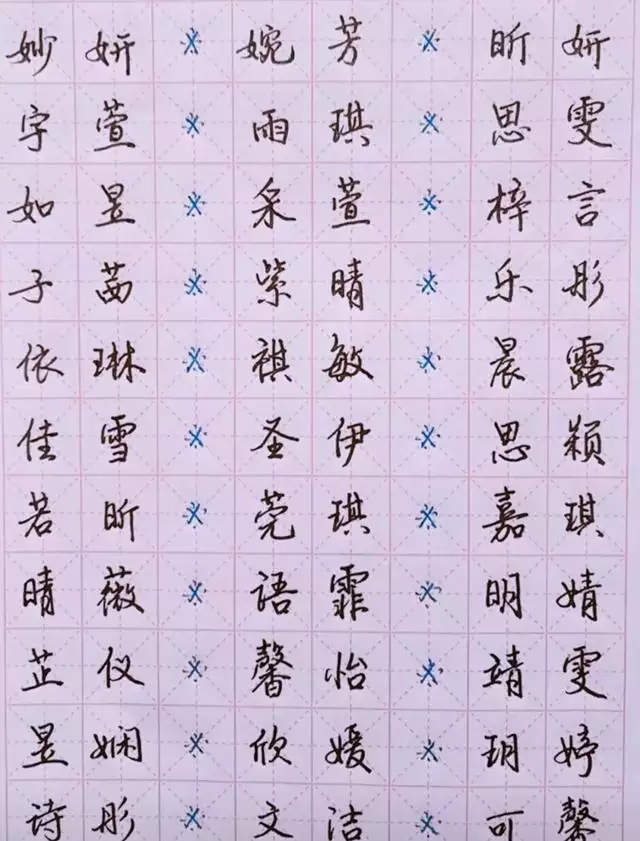 妙妍※婉芳※昕妍
字萱※雨琪※思雯
如昱※采萱※梓言
子茜※紫晴※乐彤
依琳※祺敏※晨露
佳雪※圣伊※思颖
若昕※莞琪※嘉琪
晴薇※語霏※明婧
芷仪※馨怡※靖雯
昱娴※欣媛※玥婷
诗彤※文洁※可馨